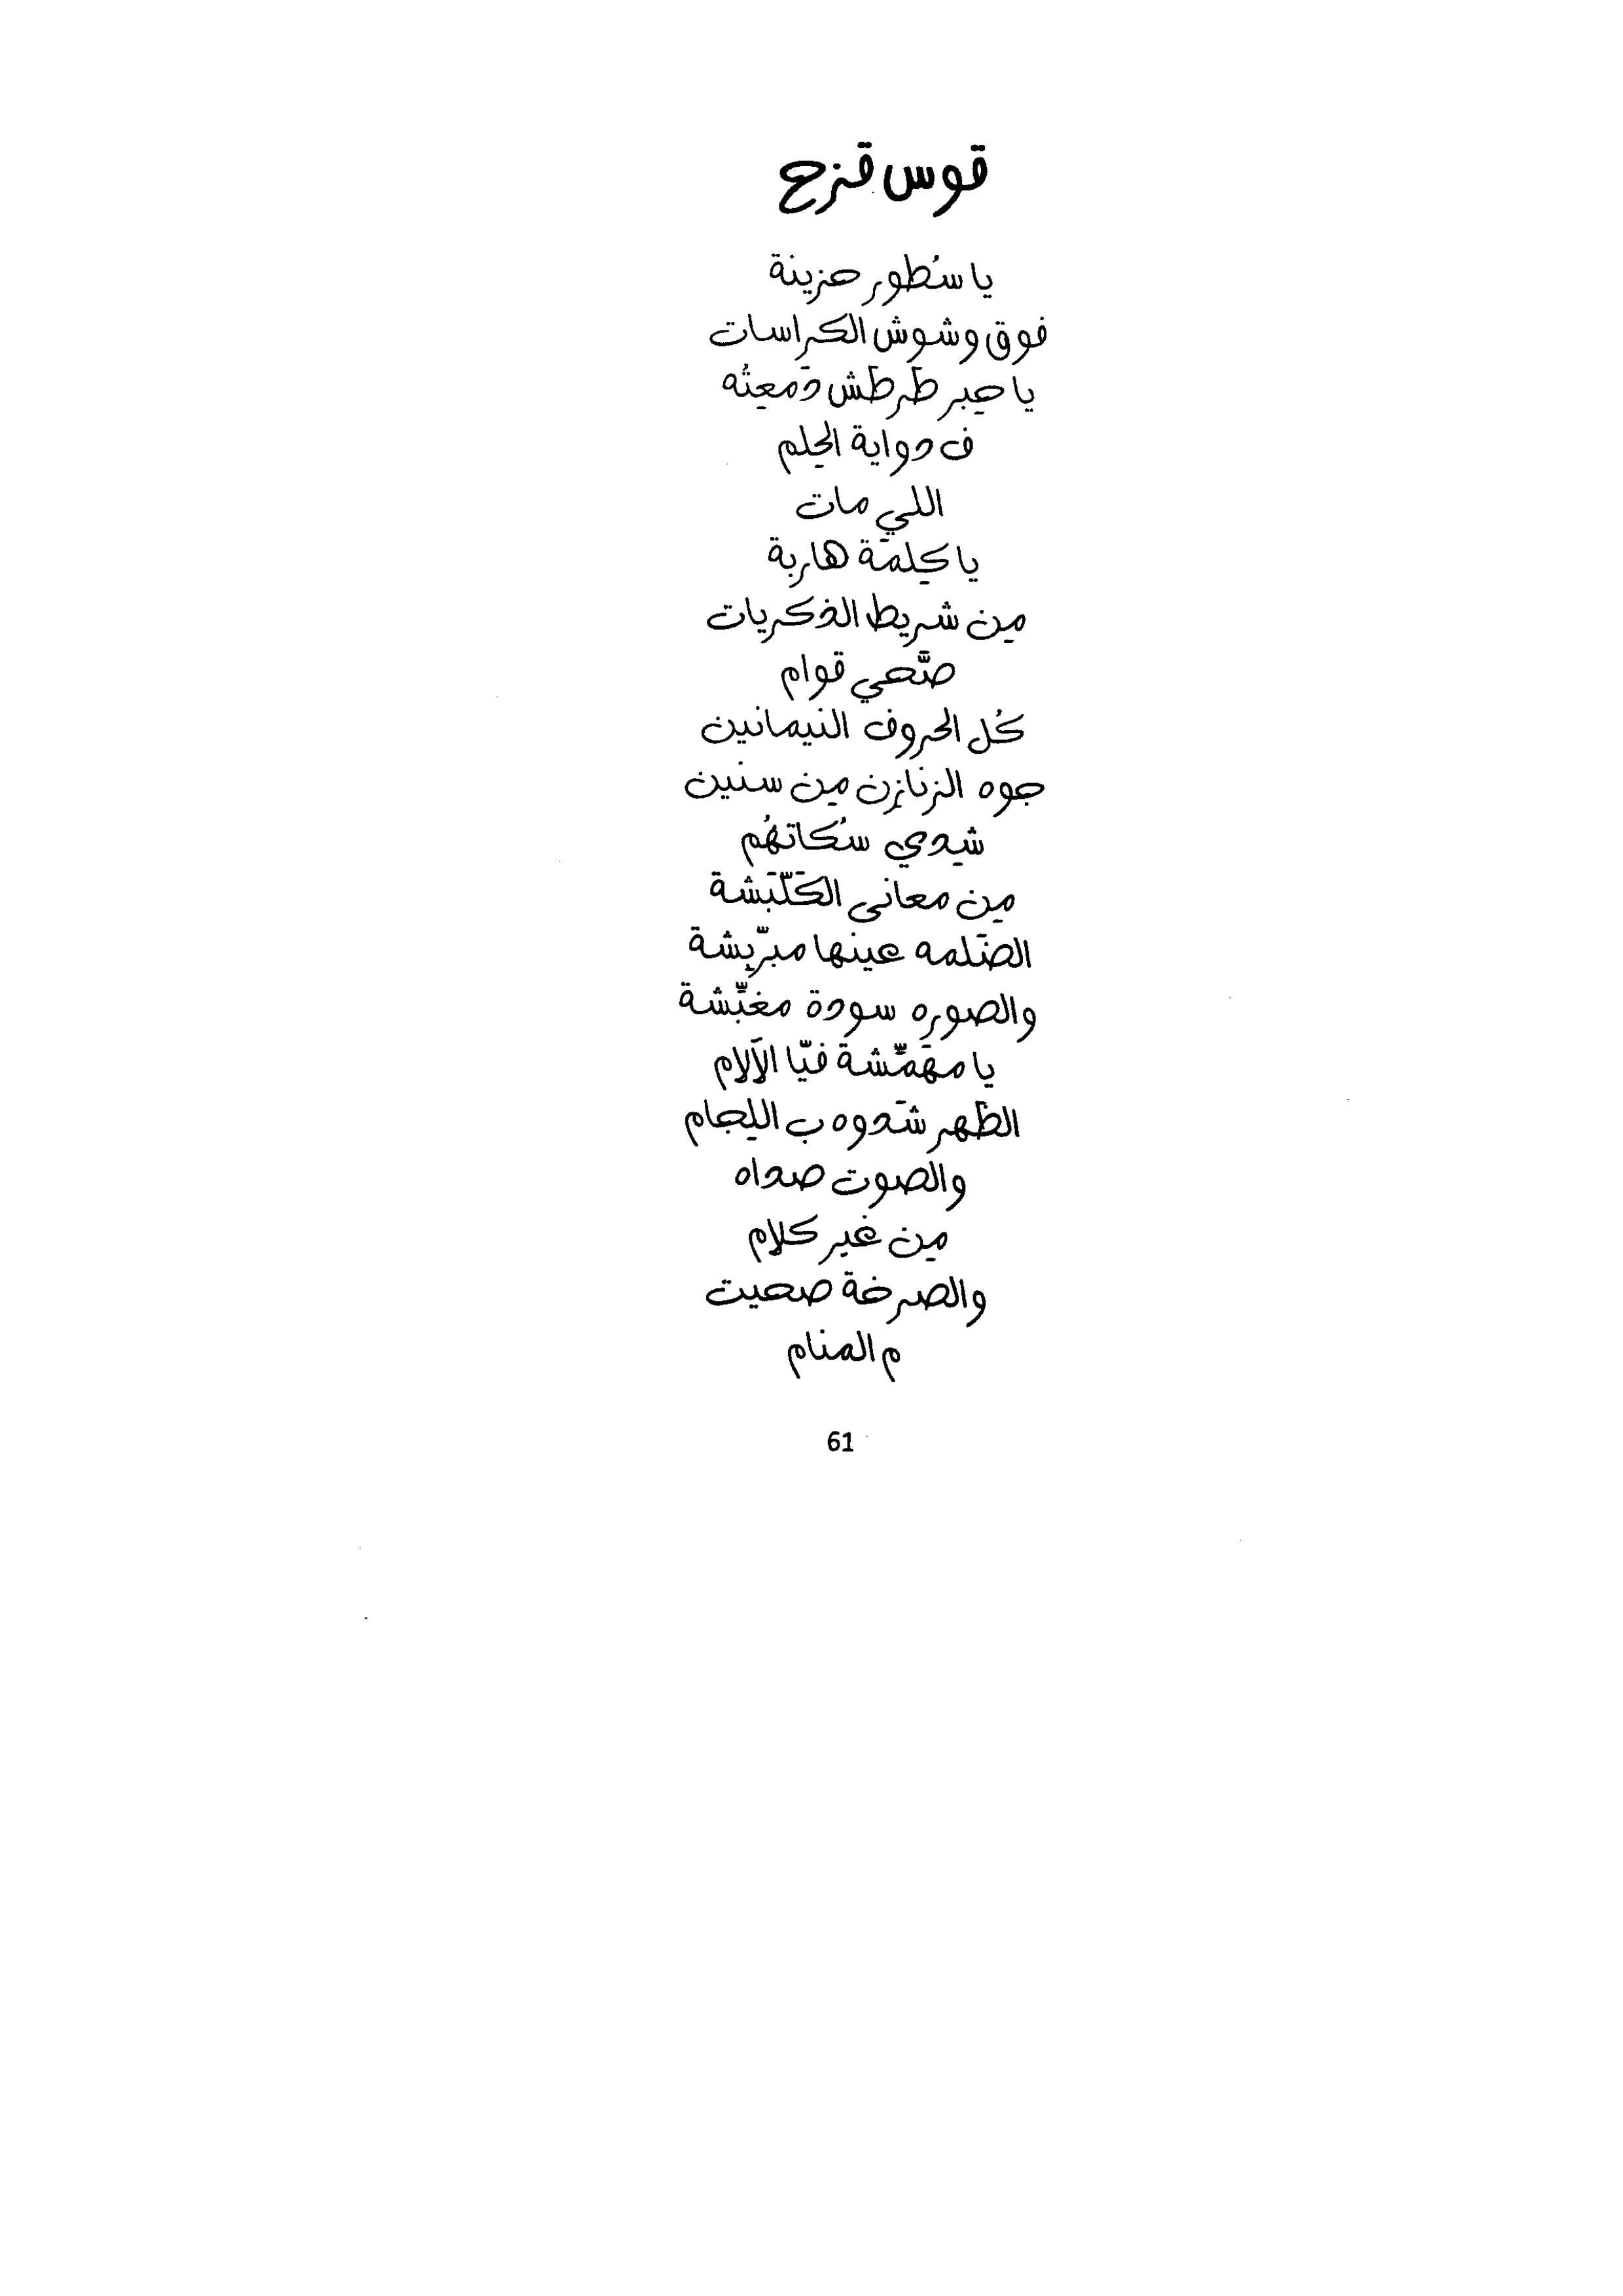 قوس قزح
يا سُطور حزينة
فوق وشوش الكراسات
يا حِبر طَرطَش دَمعِتُه
ف دواية الحِلم
اللي مات
يا كِلمَة هاربة
مِن شريط الذكريات
صَّحي قوام
كُل الحروف النيمانين
جوه الزنازِن مِن سنين
شِدي سُكاتهُم
مِن معاني الكَلّبَشة
الضَلمه عينها مبرّبِشة
والصوره سودة مغبّشة
يا مهَمّشة فيّا الآلام
الظَهر شَدوه ب اللِجام
والصوت صداه
مِن غير كلام
والصرخة صحيت
م المنام
61